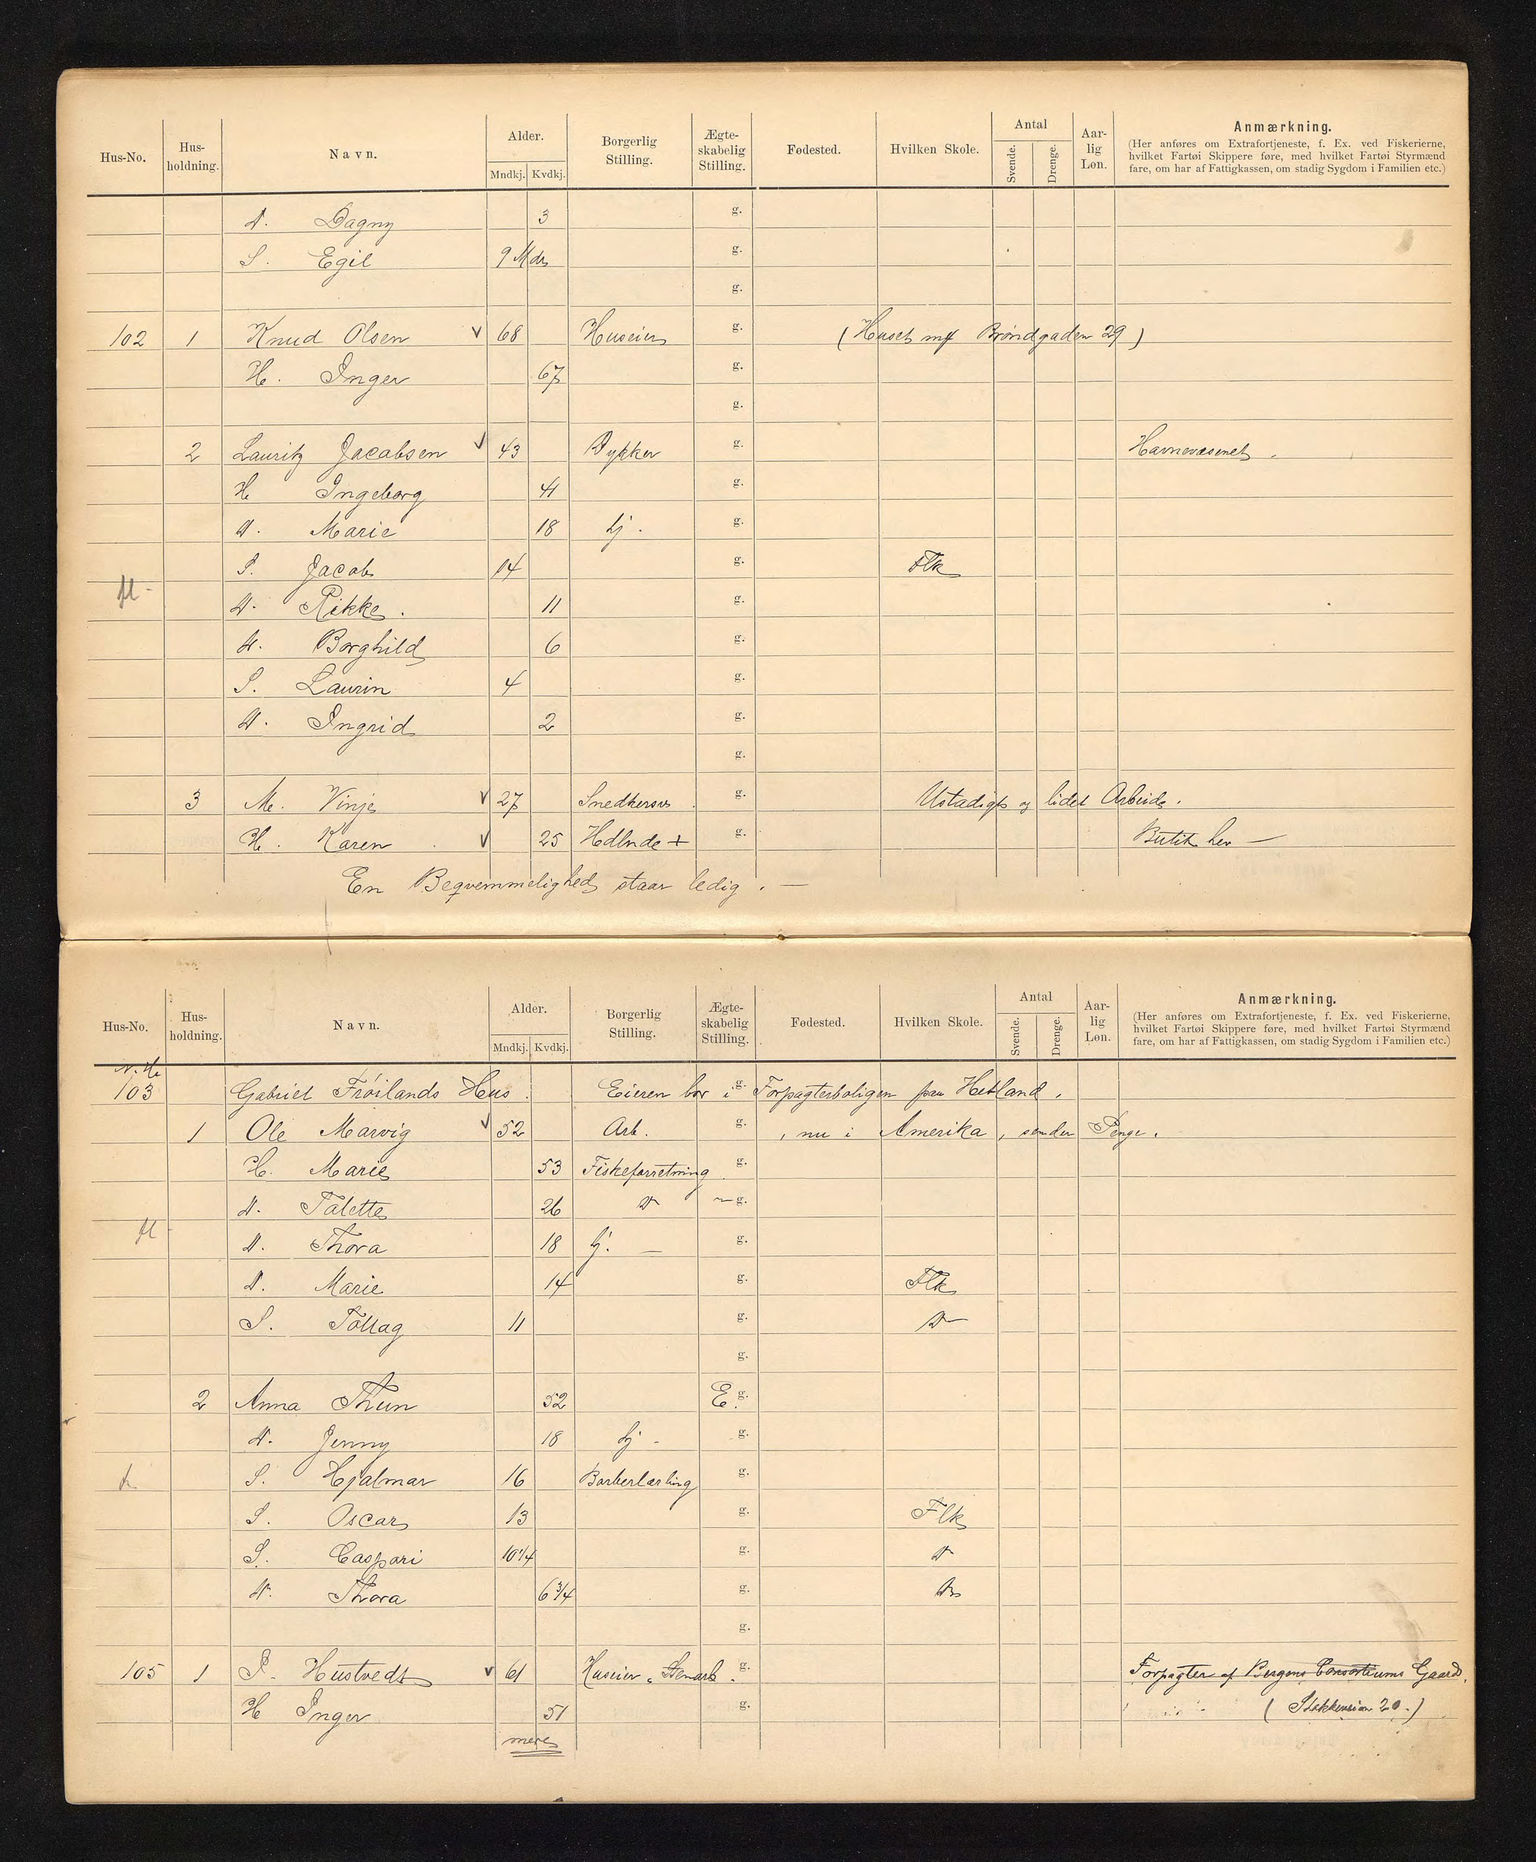 Hus-No. Hus-holdning. Navn. Alder. Mndkj. Kvdkj. Borgerlig Stilling. Ægte-skabelig Stilling. Fødested. Hvilken Skole. Antal Svende. Drenge. Aar-lig Løn. Anmærkning.
(Her anføres om Extrafortjeneste, f. Ex. ved Fiskerierne,
hvilket Fartøi Skippere føre, med hvilket Fartøi Styrmænd
fare, om har af Fattigkassen, om stadig Sygdom i Familien etc.)
D. Dagny 3 g.
S. Egil 9 Mdr g.
g.
102 1 Knud Olsen V 68 Huseier g. (Huset mf Brøndgaden 29)
H. Inger 67 g.
g.
2 Lauritz Jacobsen V 43 Dykker g. Havnevæsenet.
H Ingeborg 41 g.
D. Marie 18 hj. g.
S. Jacob 14 g. Flk
D. Rikke. 11 g.
D. Borghild 6 g.
S. Laurin 4 g.
D. Ingrid 2 g.
g.
3 M. Vinje V 27 Snedkersv g. Ustadigt og lidet Arbeide.
H. Karen V 25 Hdlnde + g. Butik her —
En Beqvemmelighed staar ledig. —
Hus-No. Hus-holdning. Navn. Alder. Mndkj. Kvdkj. Borgerlig Stilling. Ægte-skabelig Stilling. Fødested. Hvilken Skole. Antal Svende. Drenge. Aar-lig Løn. Anmærkning.
(Her anføres om Extrafortjeneste, f. Ex. ved Fiskerierne,
hvilket Fartøi Skippere føre, med hvilket Fartøi Styrmænd
fare, om har af Fattigkassen, om stadig Sygdom i Familien etc.)
103 Gabriel Frøilands Hus. Eieren bor i g. Forpagterboligen paa Hetland.
1 Ole Marvig V 52 Arb. g. , nu i Amerika, sender Penge.
H. Marie 53 Fiskeforretning g.
D. Talette 26 D g.
D. Thora 18 hj. — g.
D. Marie 14 g. Flk
S. Tollag 11 g. D
g.
2 Anna Thun 52 E. g.
D. Jenny 18 hj - g.
S. Hjalmar 16 Barberlærling g.
S. Oscar 13 g. Flk
S. Caspari 10 1/4 g. D
D. Thora 6 3/4 g. Do
g.
105 1 P. Hustvedt V 61 Huseier, Stenarb. g. Forpagter af Bergens Consortiums Gaard.
H Inger 51 g. (Stokkaveien 20.)
mere